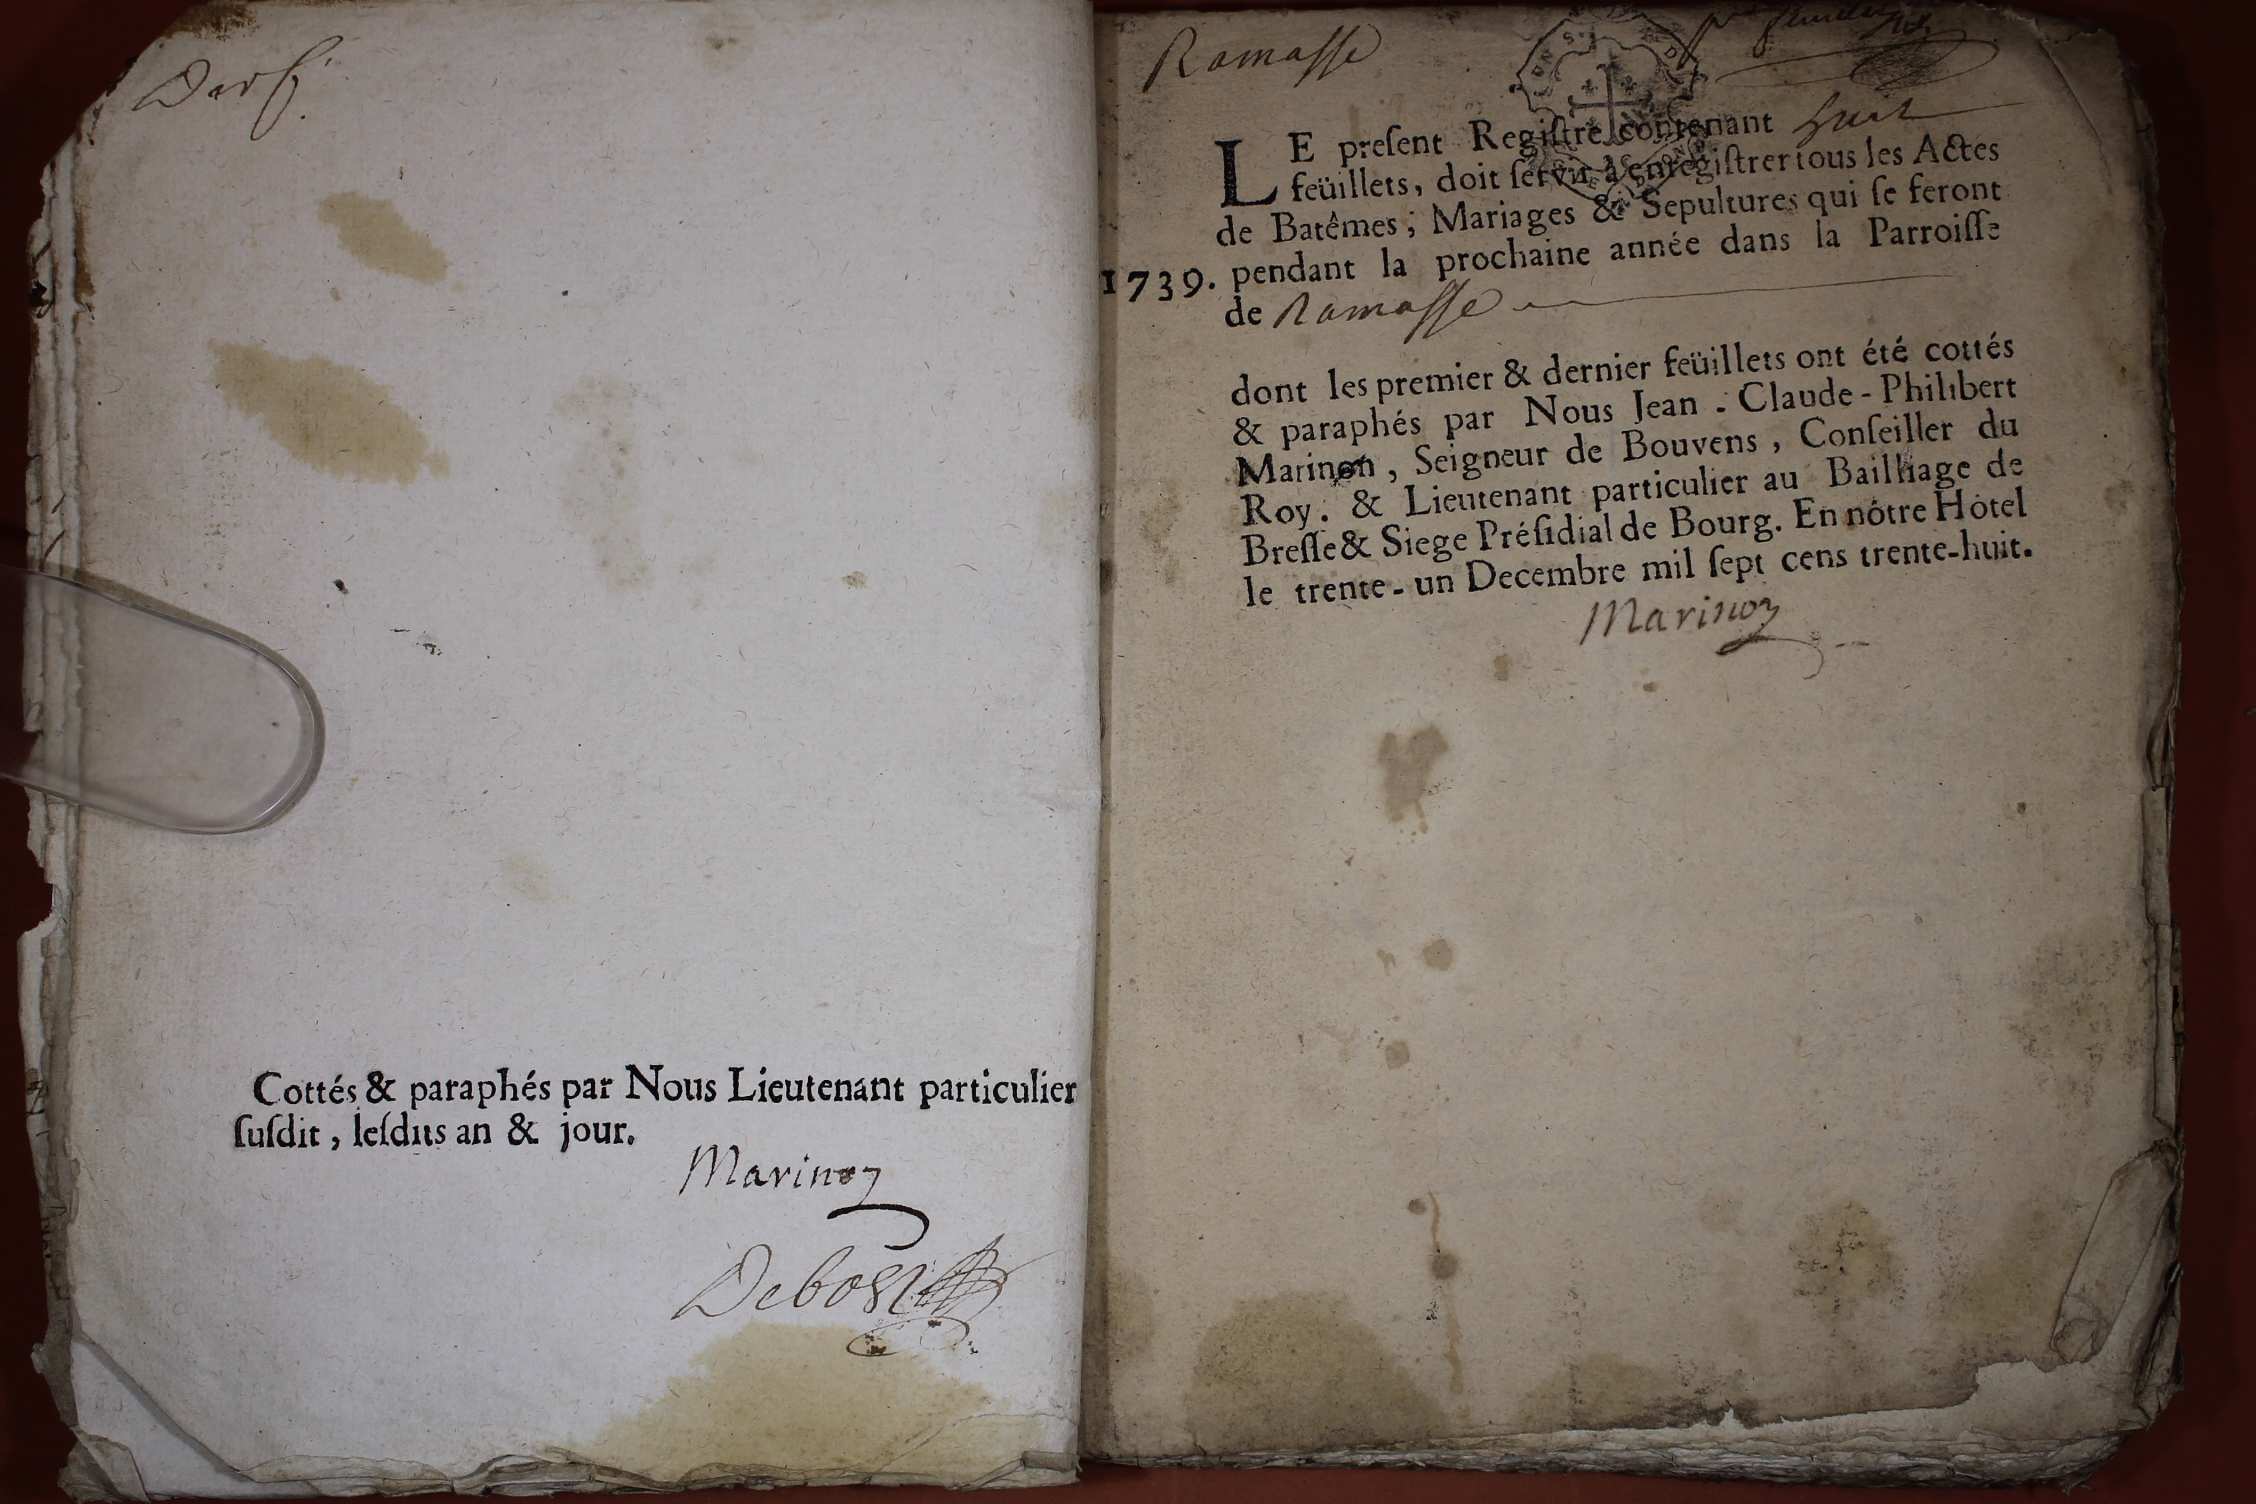 Cottés & paraphés par Nous Lieutenant particulier
ſuſdit, leſdits an & jour.
Marinon
Ramasse
LE preſent Regiſtre contenant huit
feüillets, doit ſervir à enregiſtrer tous les Actes
de Batêmes, Mariages & Sepultures qui ſe feront
1739. pendant la prochaine année dans la Parroiſſe
de Ramasse
dont les premier & dernier feüillets ont été cottés
& paraphés par Nous Jean-Claude-Philibert
Marinon, Seigneur de Bouvens, Conſeiller du
Roy. & Lieutenant particulier au Bailliage de
Breſſe & Siege Préſidial de Bourg. En nôtre Hôtel
le trente-un Decembre mil ſept cens trente-huit.
Marinon